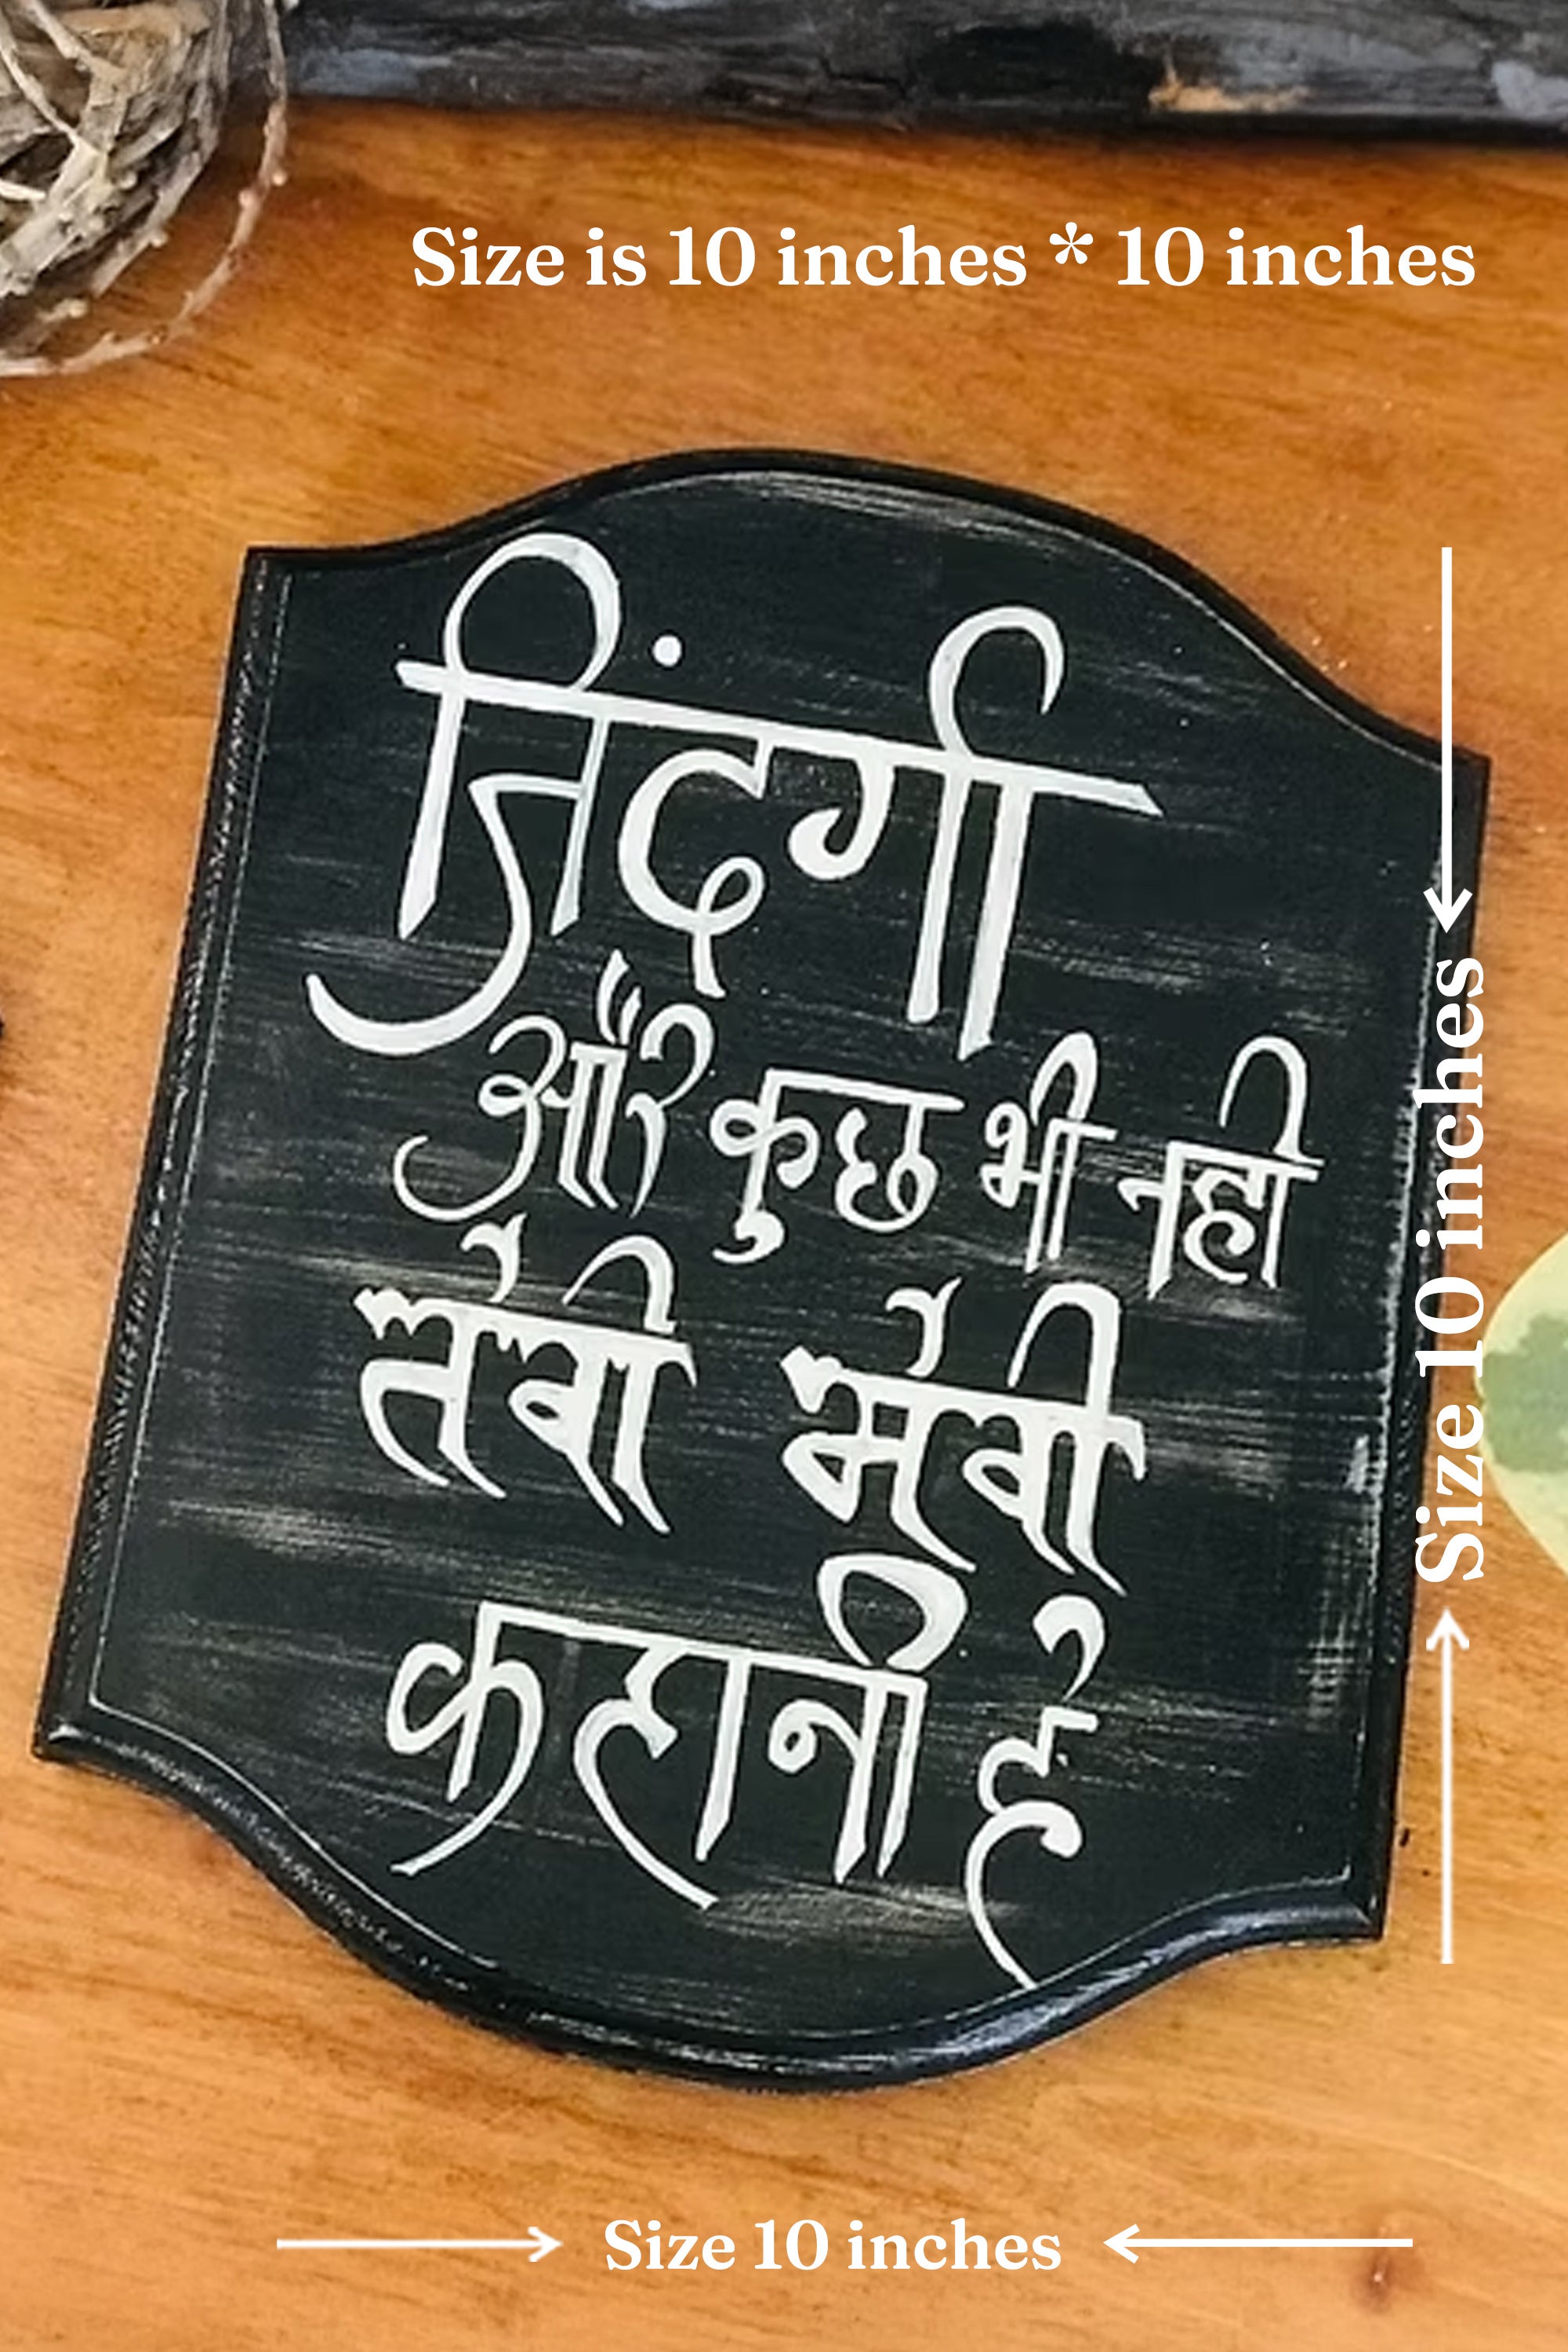 Size is 10 inches * 10 inches
जिंदगी
और कुछ भी नही
तेरी मेरी
कहानी है
Size 10 inches
Size 10 inches